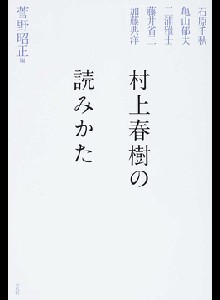 石原千秋
亀山郁夫
三浦雅士
藤井省三
加藤典洋
菅野昭正 編
村上春樹の
読みかた